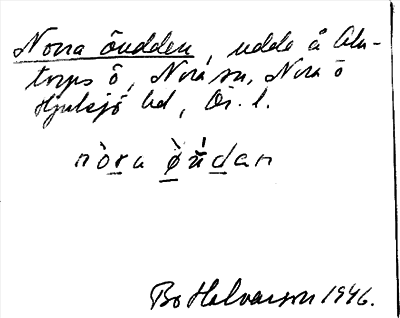 Norra öudden, udde å Ala-
torps ö, Norasn, Nora o
Hjulsjö bd, Ör. l.
nòra ø̀údan
Bo Halvarson 1946.